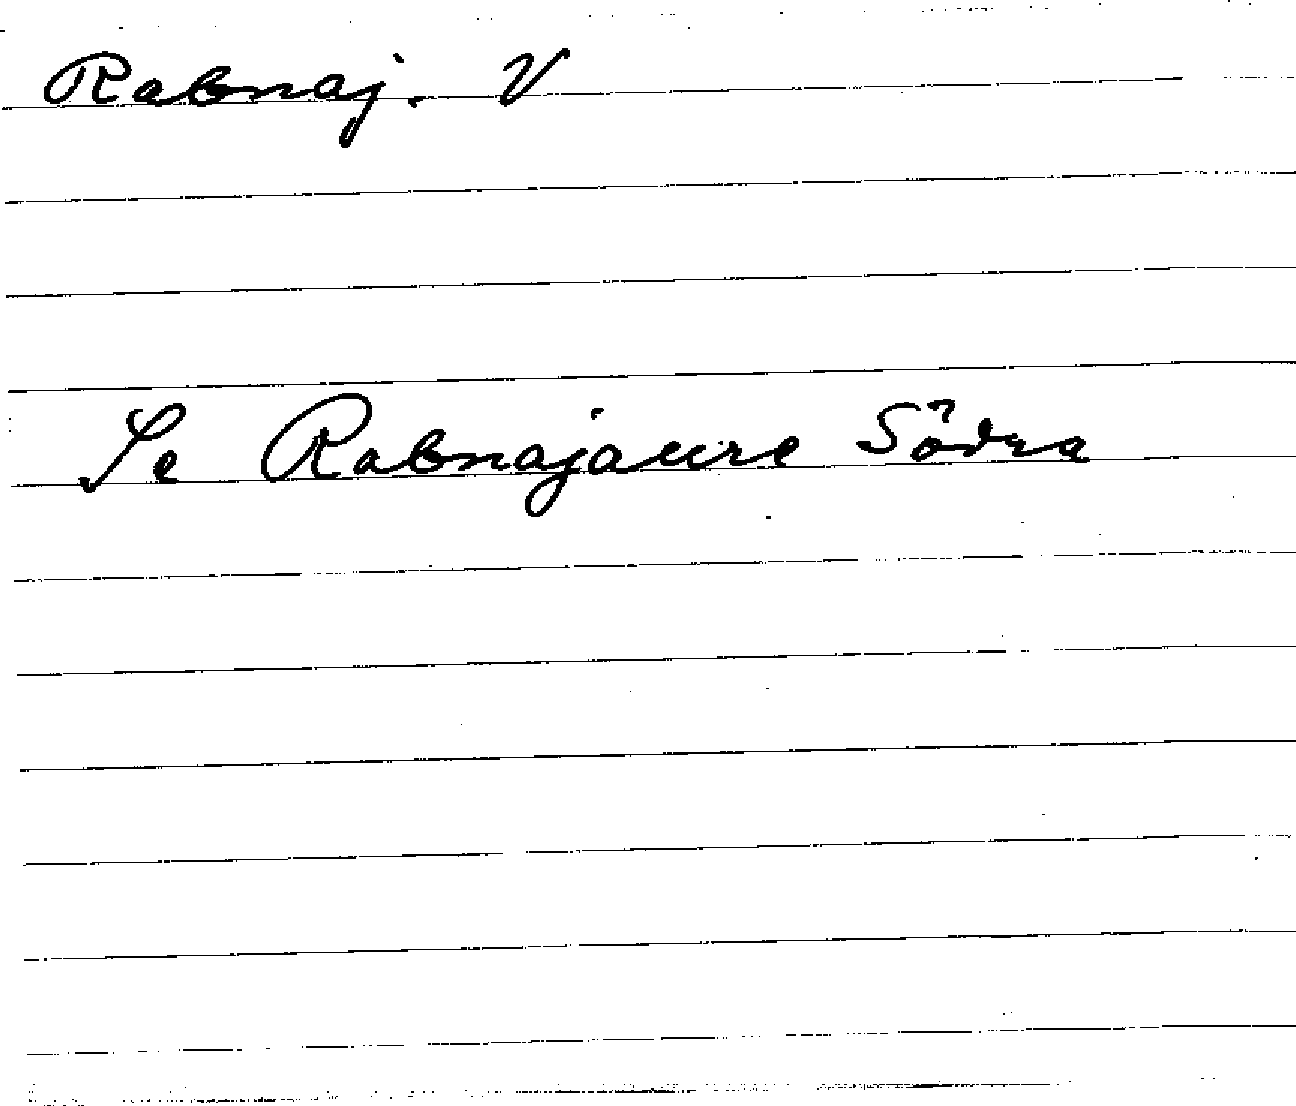 Rabnaj. V
Se Rabnajaure Södra